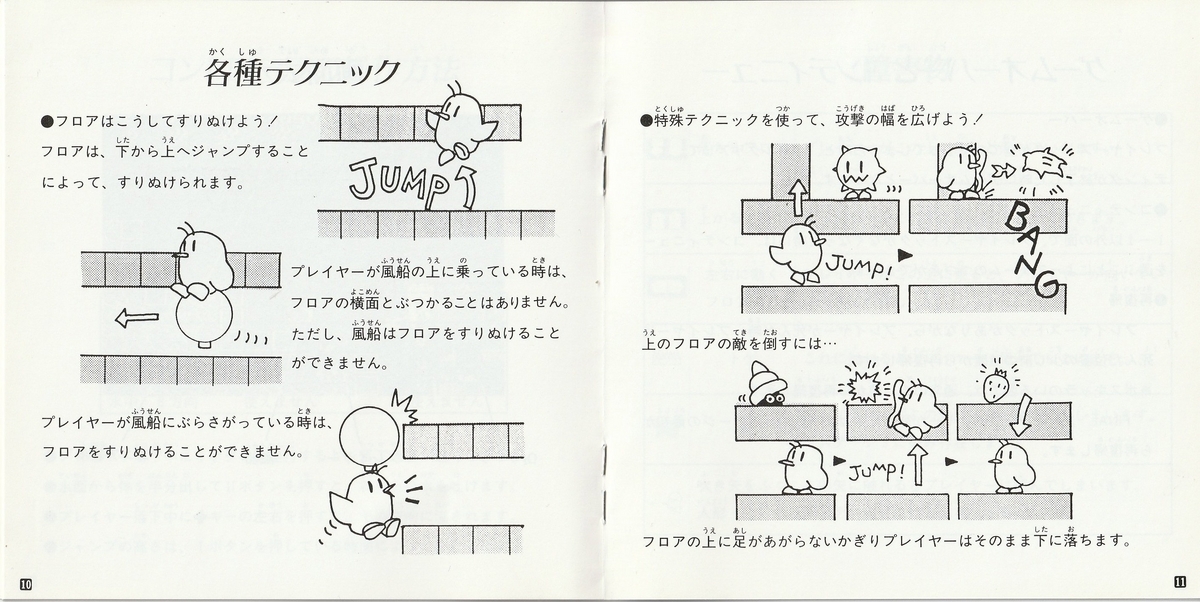 各種テクニック
●フロアはこうしてすりぬけよう！
フロアは、下から上へジャンプすること
によって、すりぬけられます。
JUMP
プレイヤーが風船の上に乗っている時は、
フロアの横面とぶつかることはありません。
ただし、風船はフロアをすりぬけること
ができません。
プレイヤーが風船にぶらさがっている時は、
フロアをすりぬけることができません。
10
●特殊テクニックを使って、攻撃の幅を広げよう！
JUMP!
BANG
上のフロアの敵を倒すには…
JUMP!
フロアの上に足があがらないかぎりプレイヤーはそのまま下に落ちます。
11